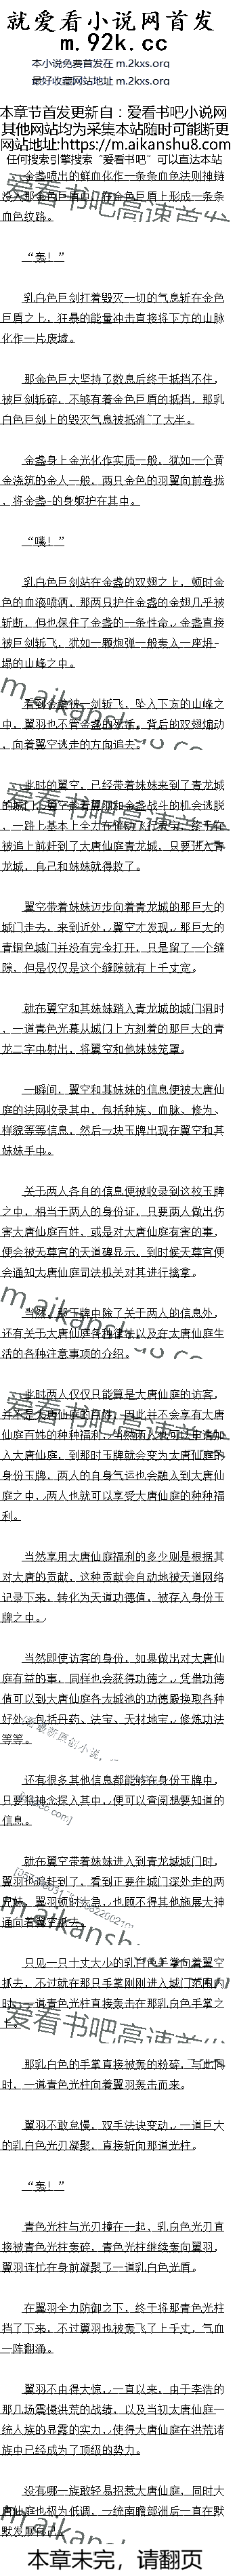 就爱看小说网首发
m.92k.cc
本小说免费首发在 m.2kxs.org
最好收藏网站地址 m.2kxs.org
本章节首发更新自：爱看书吧小说网
其他网站均为采集本站随时可能断更
网站地址:https://m.aikanshu8.com
任何搜索引擎搜索“爱看书吧”可以直达本站
金盏喷出的鲜血化作一条条血色法则神链
没入那金色巨盾中，在金色巨盾上形成一条条
血色纹路。
“轰！”
乳白色巨剑扛着毁灭一切的气息斩在金色
巨盾之上，狂暴的能量冲击直接将下方的山脉
化作一片废墟。
那金色巨大坚持了数息后终于抵挡不住，
被巨剑斩碎，不够有着金色巨盾的抵挡，那乳
白色巨剑上的毁灭气息被抵消了大半。
金盏身上金光化作实质一般，犹如一个黄
金浇筑的金人一般，两只金色的羽翼向前卷拢
，将金盏的身躯护在其中。
“噗！”
乳白色巨剑站在金盏的双翅之上，顿时金
色的血液喷洒，那两只护住金盏的金翅几乎被
斩断，但也保住了金盏的一条性命，金盏直接
被巨剑斩飞，犹如一颗炮弹一般轰入一座坍
塌的山峰之中。
看到金盏被一剑斩飞，坠入下方的山峰之
中，翼羽也不管金盏的死活，背后的双翅煽动
，向着翼空逃走的方向追去。
此时的翼空，已经带着妹妹来到了青龙城
的城门，翼空带着翼羽和金盏战斗的机会逃脱
，一路上基本上全力在催动飞行法宝，终于在
被追上前赶到了大唐仙庭青龙城，只要进入青
龙城，自己和妹妹就得救了。
翼空带着妹妹迈步向着青龙城的那巨大的
城门走去，来到近处，翼空才发现，那巨大的
青铜色城门并没有完全打开，只是留了一个缝
隙，但是仅仅是这个缝隙就有上千丈宽。
就在翼空和其妹妹踏入青龙城的城门洞时
，一道青色光幕从城门上方刻着的那巨大的青
龙二字中射出，将翼空和他妹妹笼罩。
一瞬间，翼空和其妹妹的信息便被大唐仙
庭的法网收录其中，包括种族、血脉、修为、
样貌等等信息，然后一块玉牌出现在翼空和其
妹妹手中。
关于两人各自的信息便被收录到这枚玉牌
之中，相当于两人的身份证，只要两人做出伤
害大唐仙庭百姓，或是对大唐仙庭有害的事，
便会被天尊宫的天道碑显示，到时候天尊宫便
会通知大唐仙庭司法机关对其进行擒拿。
当然，那玉牌中除了关于两人的信息外，
还有关于大唐仙庭各种律法以及在大唐仙庭生
活的各种注意事项的介绍。
此时两人仅仅只能算是大唐仙庭的访客，
并不是大唐仙庭的百姓，因此并不会享有大唐
仙庭百姓的种种福利，当然两人也可以申请加
入大唐仙庭，到那时玉牌就会变为大唐仙庭的
身份玉牌，两人的自身气运也会融入到大唐仙
庭之中，两人也就可以享受大唐仙庭的种种福
利。
当然享用大唐仙庭福利的多少则是根据其
对大唐的贡献，这种贡献会自动地被天道网络
记录下来，转化为天道功德值，被存入身份玉
牌之中。
当然即使访客的身份，如果做出对大唐仙
庭有益的事，同样也会获得功德之，凭借功德
值可以到大唐仙庭各大城池的功德殿换取各种
好处，包括丹药、法宝、天材地宝，修炼功法
等等。
还有很多其他信息都能够在身份玉牌中，
只要将神念探入其中，便可以查阅想要知道的
信息。
就在翼空带着妹妹进入到青龙城城门时，
翼羽也追赶到了，看到正要往城门深处走的两
兄妹，翼羽顿时大急，也顾不得其他施展大神
通向着翼空抓去。
只见一只十丈大小的乳白色手掌向着翼空
抓去，不过就在那只手掌刚刚进入城门范围内
时，一道青色光柱直接轰击在那乳白色手掌之
上。
那乳白色的手掌直接被轰的粉碎，与此同
时，一道青色光柱向着翼羽轰击而来。
翼羽不敢怠慢，双手法诀变动，一道巨大
的乳白色光刃凝聚，直接斩向那道光柱。
“轰！”
青色光柱与光刃撞在一起，乳白色光刃直
接被青色光柱轰碎，青色光柱继续轰向翼羽，
翼羽连忙在身前凝聚了一道乳白色光盾。
在翼羽全力防御之下，终于将那青色光柱
挡了下来，不过翼羽也被轰飞了上千丈，气血
一阵翻涌。
翼羽不由得大惊，一直以来，由于李浩的
那几场震慑洪荒的战绩，以及当初太唐仙庭一
统人族的显露的实力，使得大唐仙庭在洪荒诸
族中已经成为了顶级的势力。
没有哪一族敢轻易招惹大唐仙庭，同时大
唐仙庭也极为低调，一统南瞻部洲后一直在默
默发展自己。
本章未完，请翻页